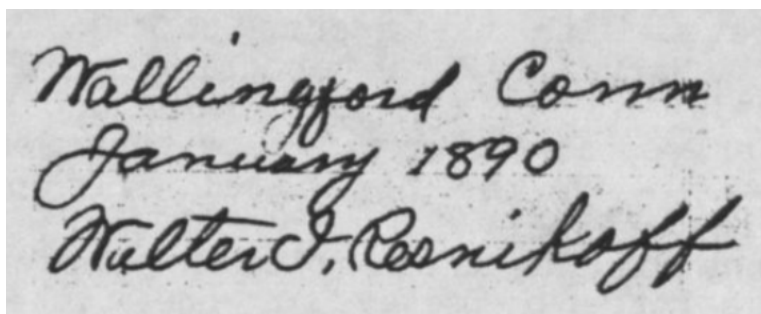 Wallingford Conn
January 1890
Walter I. Resnikoff